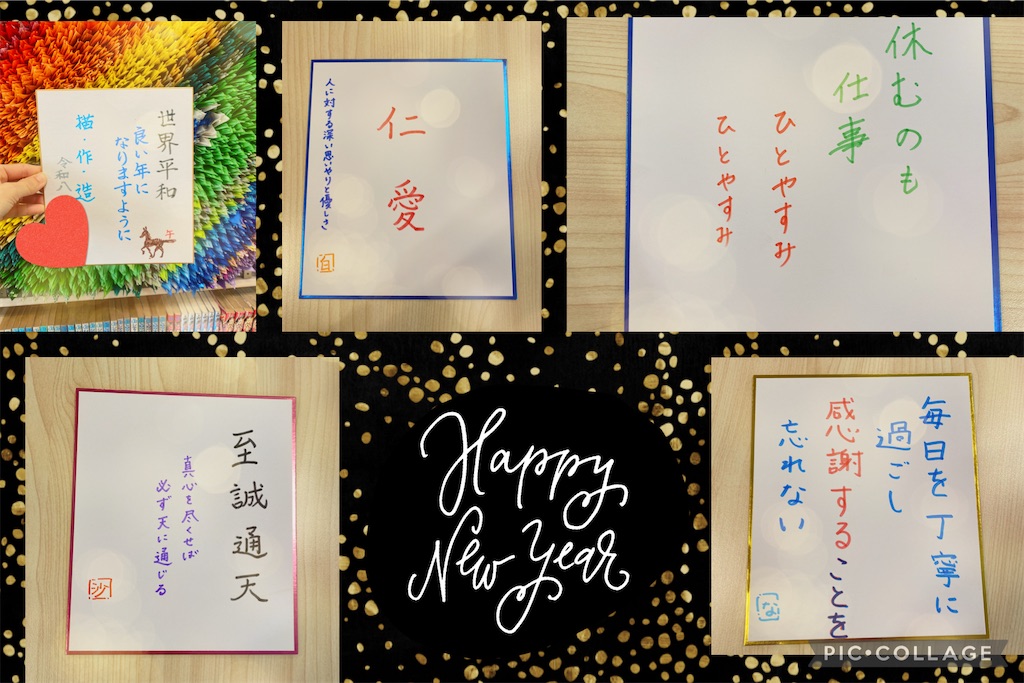 世界平和
良い年に
なりますように
描・作・造
令和八
午
仁愛
人に対する深い思いやりと優しさ
休むのも
仕事
ひとやすみ
ひとやすみ
至誠通天
真心を尽くせば
必ず天に通じる
沙
Happy
New Year
毎日を丁寧に
過ごし
感謝することを
忘れない
な
PIC•COLLAGE